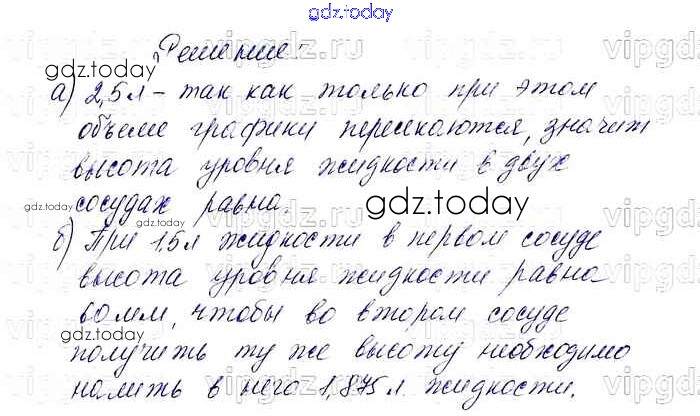 gdz.today
Решение
vipgdz.ru
gdz.today
а) 2,5л – так как только при этом
объеме графики пересекаются, значит
высота уровня жидкости в двух
сосудах равна.
gdz.today
gdz.today
gdz.today
б) При 1.5л жидкости в первом сосуде
высота уровня жидкости равна
60мм, чтобы во втором сосуде
gdz.today
получить ту же высоту необходимо
налить в него 1,875л жидкости.